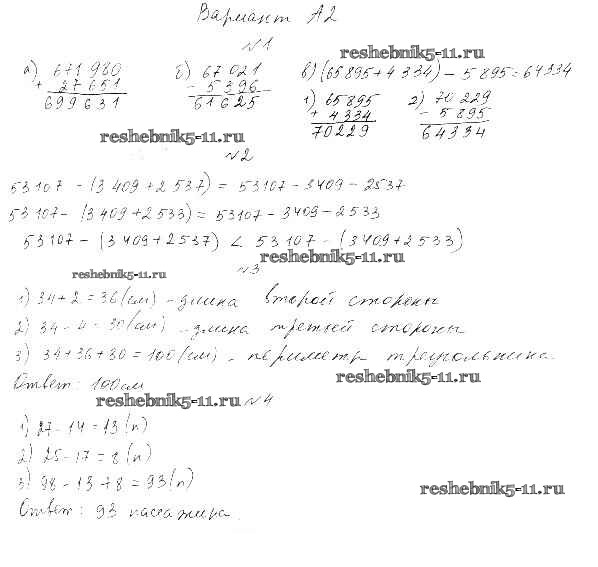 Вариант А2
№1
reshebnik5-11.ru
а) 671 980 б) 67 021 в) (65895+4334) - 5895=64334
+ 27 651 - 5 396 1) 65895 2) 70 229
699 631 61 625 + 4334 - 5 895
reshebnik5-11.ru 70229 64334
№2
53107 - (3409+2537) = 53107 - 3409 - 2537
53107 - (3409+2533) = 53107 - 3409 - 2533
53107 - (3409+2537) < 53107 - (3409+2533)
reshebnik5-11.ru
reshebnik5-11.ru №3
1) 34+2=36(см) - длина второй стороны
2) 34-4=30(см) - длина третьей стороны
3) 34+36+30=100(см) - периметр треугольника
reshebnik5-11.ru
Ответ: 100см
reshebnik5-11.ru №4
1) 27-14=13(п)
2) 25-17=8(п)
3) 98-13+8=93(п)
reshebnik5-11.ru
Ответ: 93 пассажира.